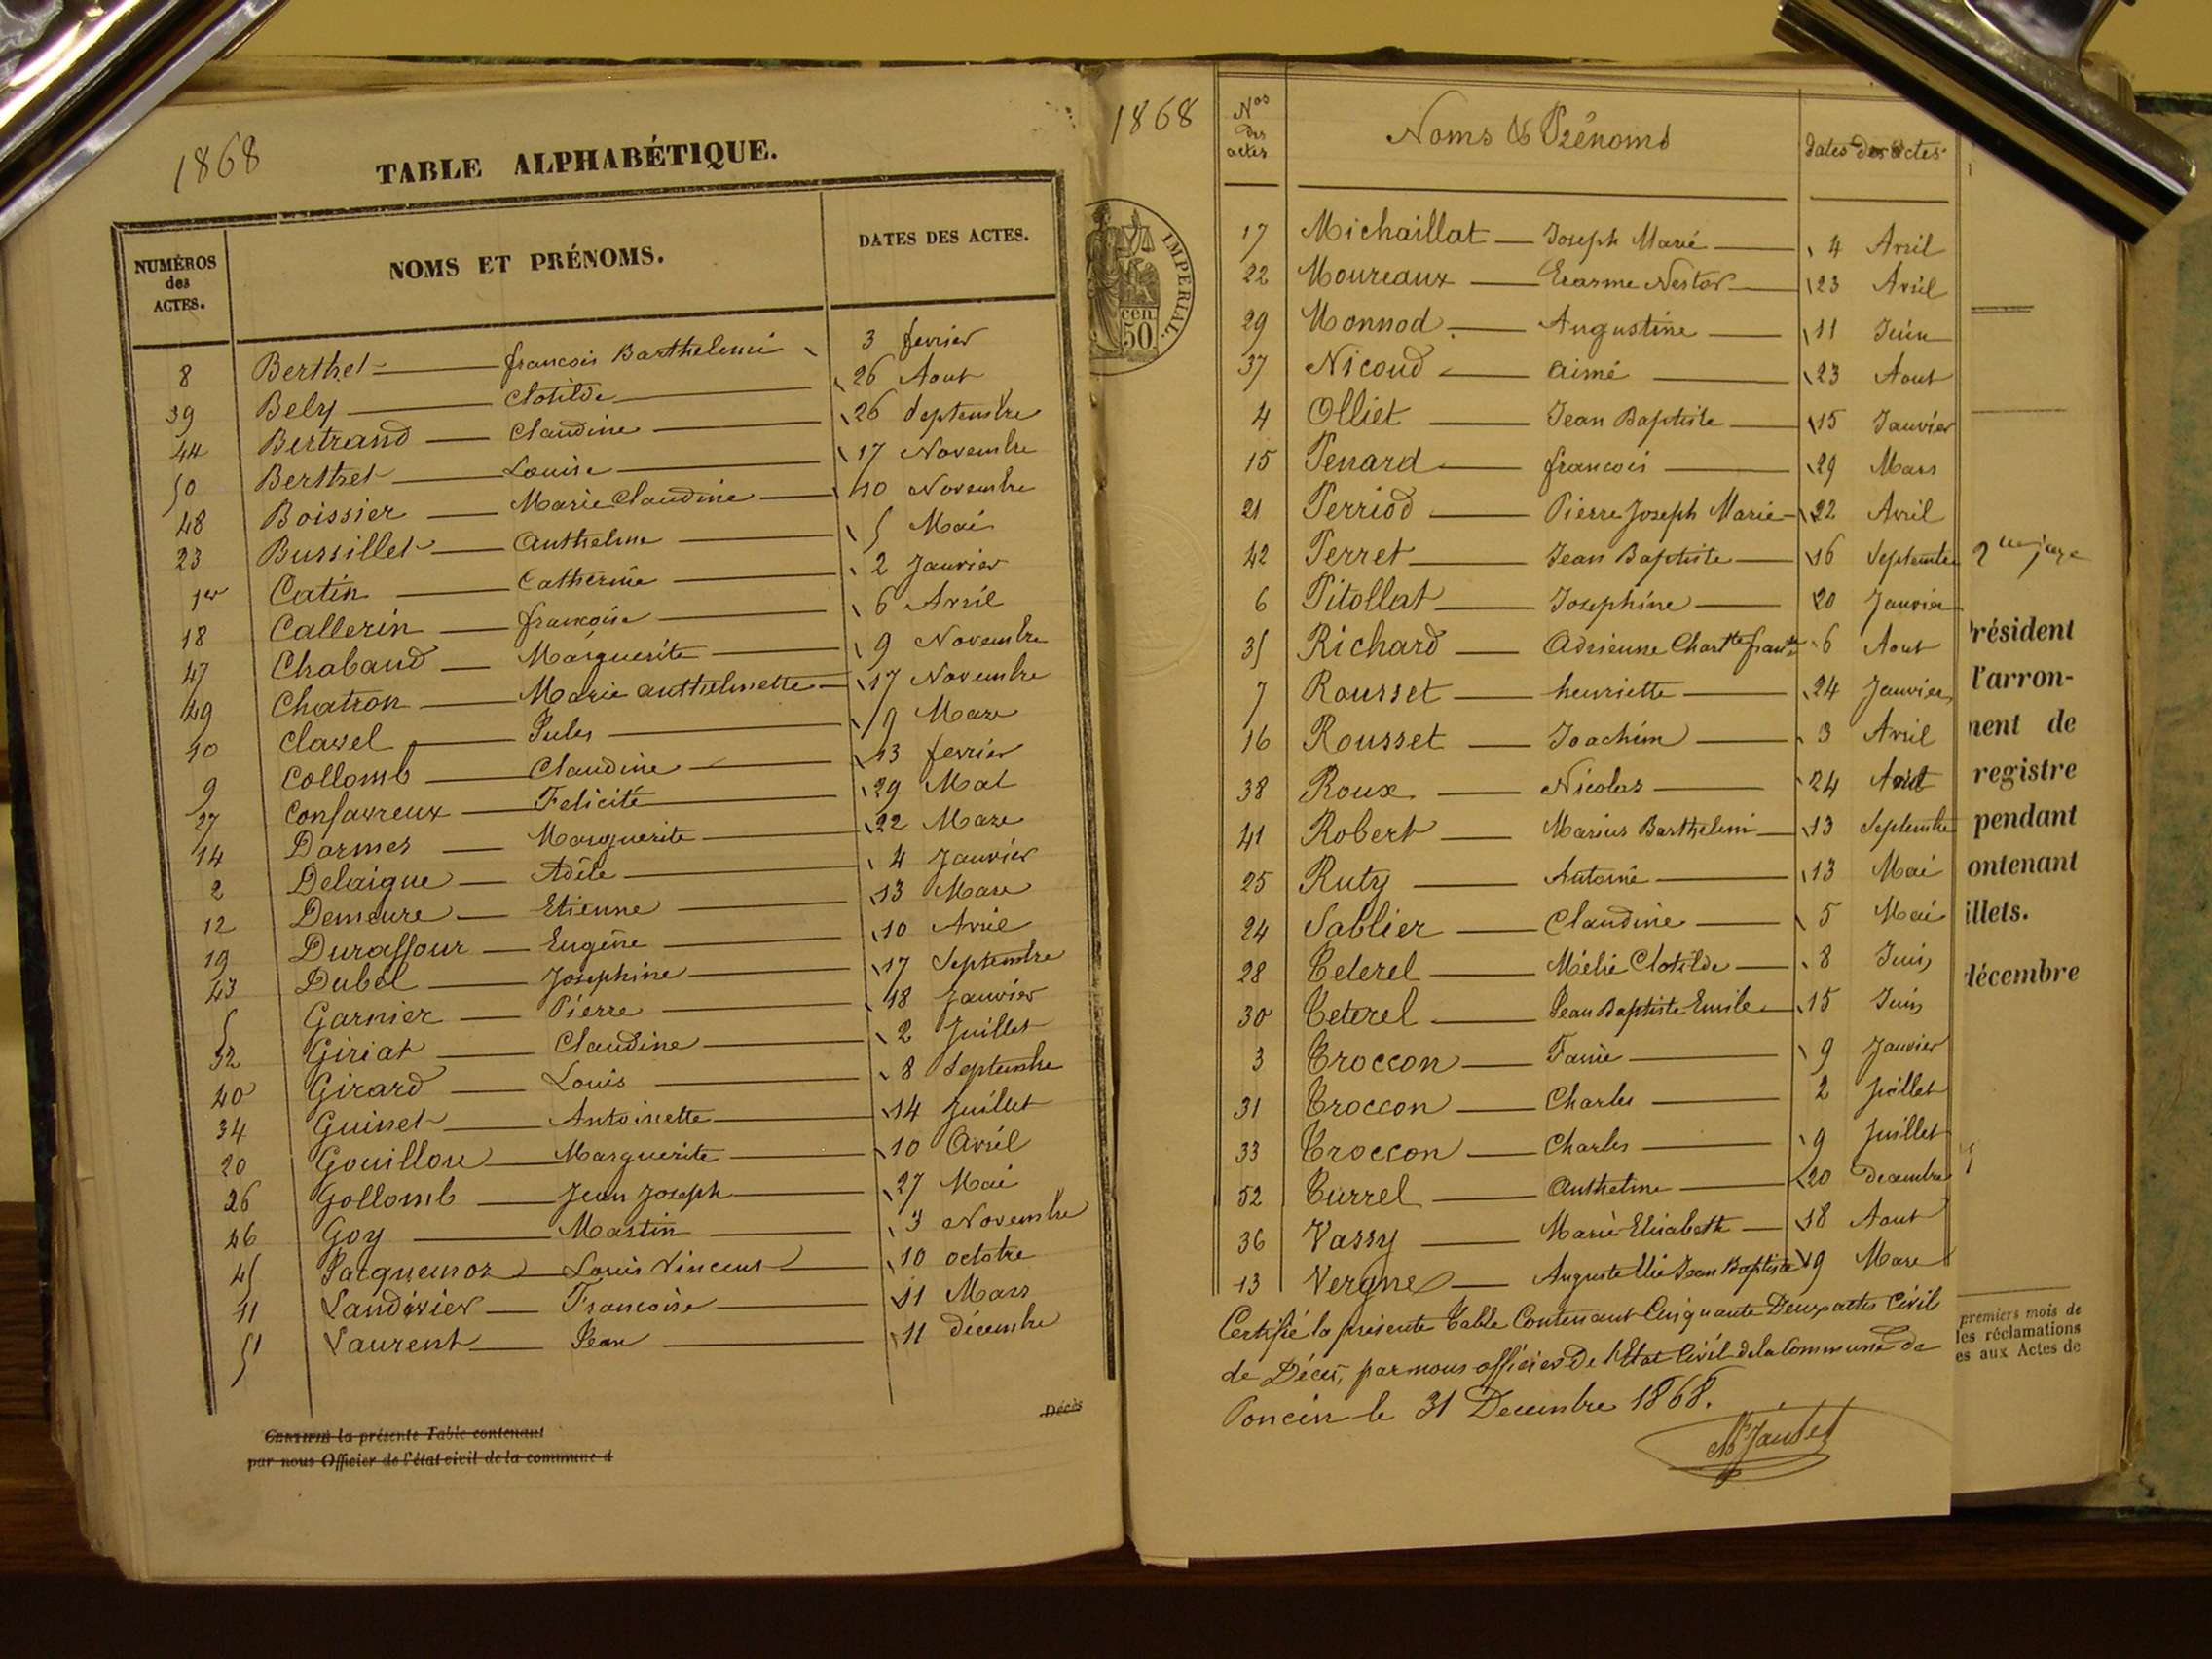 1868
TABLE ALPHABÉTIQUE.
NUMÉROS des ACTES. NOMS ET PRÉNOMS. DATES DES ACTES.
8 Berthet francois Barthelemi 3 fevrier
39 Bely Clotilde 26 Aout
44 Bertrand Claudine 26 Septembre
50 Berthet Louise 17 Novembre
48 Boissier Marie Claudine 10 Novembre
23 Bussillet Anthelme 5 Mai
1er Catin Catherine 2 Janvier
18 Callerin francoise 6 Avril
47 Chaband Marguerite 9 Novembre
49 Chatron Marie anthelmette 17 Novembre
10 Clavel Jules 9 Mars
9 Collomb Claudine 13 fevrier
27 Confavreux Felicité 29 Mai
14 Dormes Marguerite 22 Mars
2 Delaigue Adèle 4 Janvier
12 Demeure Etienne 13 Mars
19 Duraffour Eugène 10 Avril
43 Dubel Josephine 17 Septembre
5 Garnier Pierre 18 Janvier
32 Giriat Claudine 2 Juillet
40 Girard Louis 8 Septembre
34 Guinet Antoinette 14 Juillet
20 Gouilloux Marguerite 10 Avril
26 Gollomb Jean Joseph 27 Mai
46 Goy Martin 3 Novembre
45 Jacquemoz Louis Vincent 10 octobre
11 Landérier Francoise 11 Mars
51 Laurent Jean 11 décembre
Décès
CERTIFIÉ la présente Table contenant
par nous Officier de l'état civil de la commune d
1868
Nos des actes Noms & Prénoms dates des actes
IMPERIAL.
50 cen
17 Michaillat Joseph Marie 4 Avril
22 Moureaux Erasme Nestor 23 Avril
29 Monnod Augustine 11 Juin
37 Nicoud Aimé 23 Aout
4 Olliet Jean Baptiste 15 Janvier
15 Penard francois 29 Mars
21 Perriod Pierre Joseph Marie 22 Avril
42 Perret Jean Baptiste 16 Septembre
6 Pitollat Josephine 20 Janvier
35 Richard Adrienne 6 Aout
7 Rousset henriette 24 Janvier
16 Rousset Joachim 3 Avril
38 Roux Nicolas 24 Aout
41 Robert Marius Barthelemi 13 Septembre
25 Ruty Antoine 13 Mai
24 Sablier Claudine 5 Mai
28 Teterel Mélie Clotilde 8 Juin
30 Teterel Jean Baptiste Emile 15 Juin
3 Troccon Fanie 9 Janvier
31 Troccon Charles 2 Juillet
33 Troccon Charles 9 Juillet
52 Turrel Anthelme 20 Decembre
36 Vassy Marie Elisabeth 18 Aout
13 Vergne Auguste Jean Baptiste 19 Mars
Certifié la présente Table Contenant Cinquante Deux actes Civil
de Décès, par nous officier De l'Etat Civil de la Commune de
Poncin le 31 Decembre 1868.
résident
l'arron-
nent de
registre
pendant
ontenant
illets.
décembre
premiers mois de
les réclamations
es aux Actes de